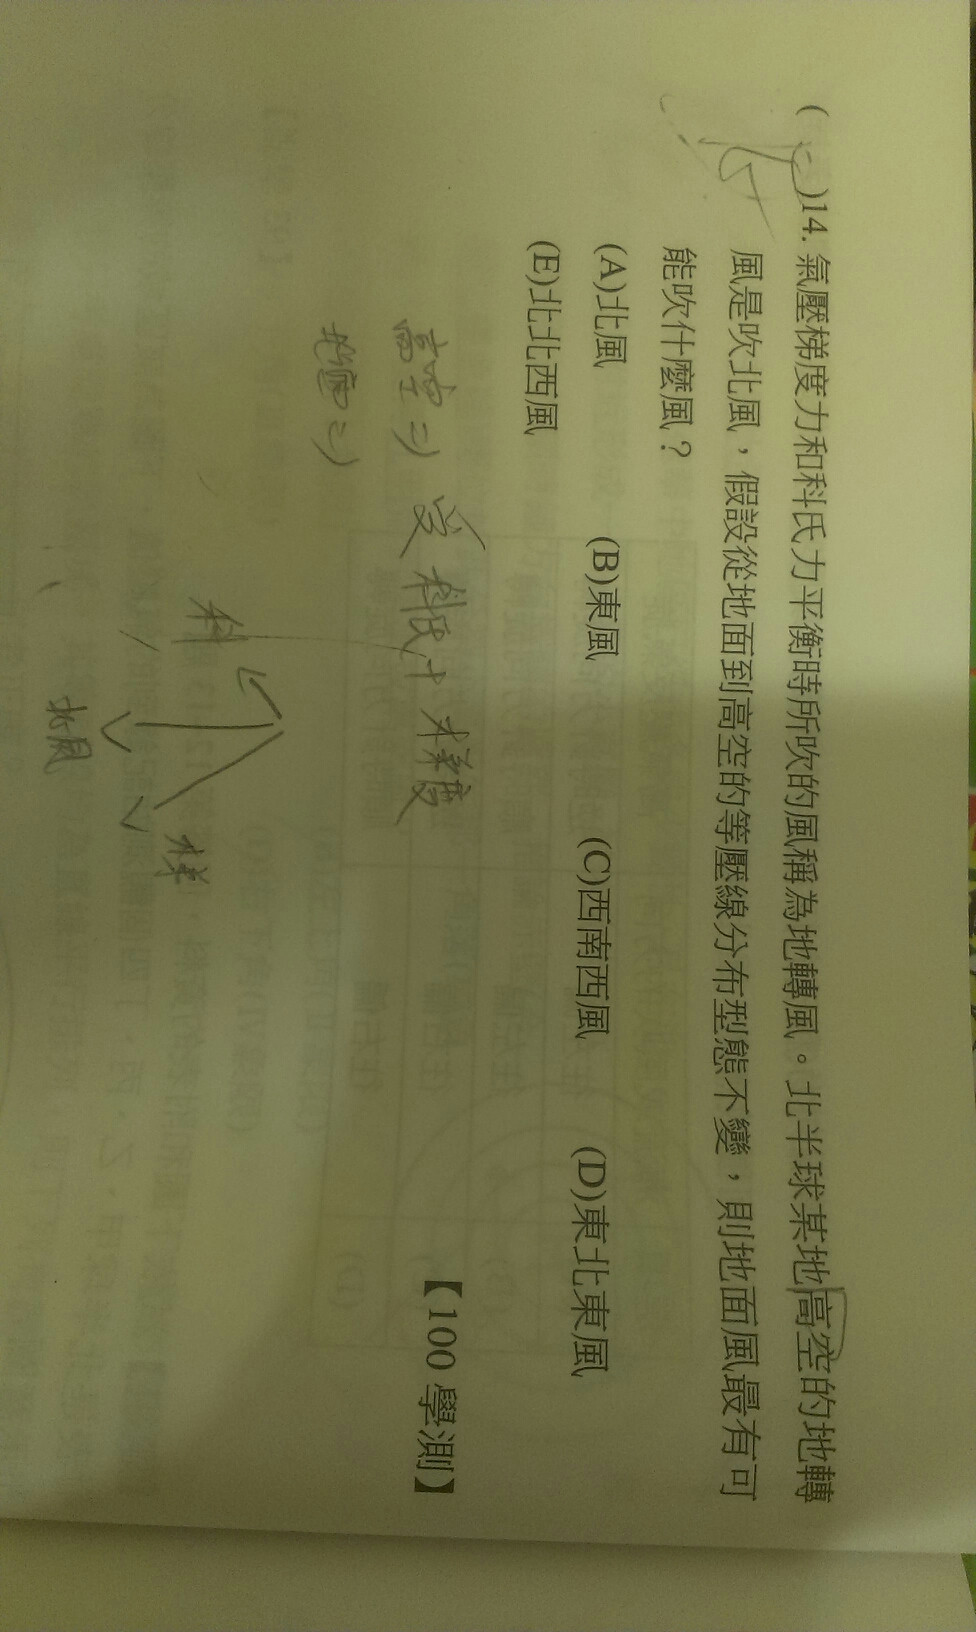 ( )14. 氣壓梯度力和科氏力平衡時所吹的風稱為地轉風。北半球某地高空的地轉
風是吹北風，假設從地面到高空的等壓線分布型態不變，則地面風最有可
能吹什麼風？
(A)北風 (B)東風 (C)西南西風 (D)東北東風
(E)北北西風
【100 學測】
高空 受科氏+梯度
地面
科
梯
北風